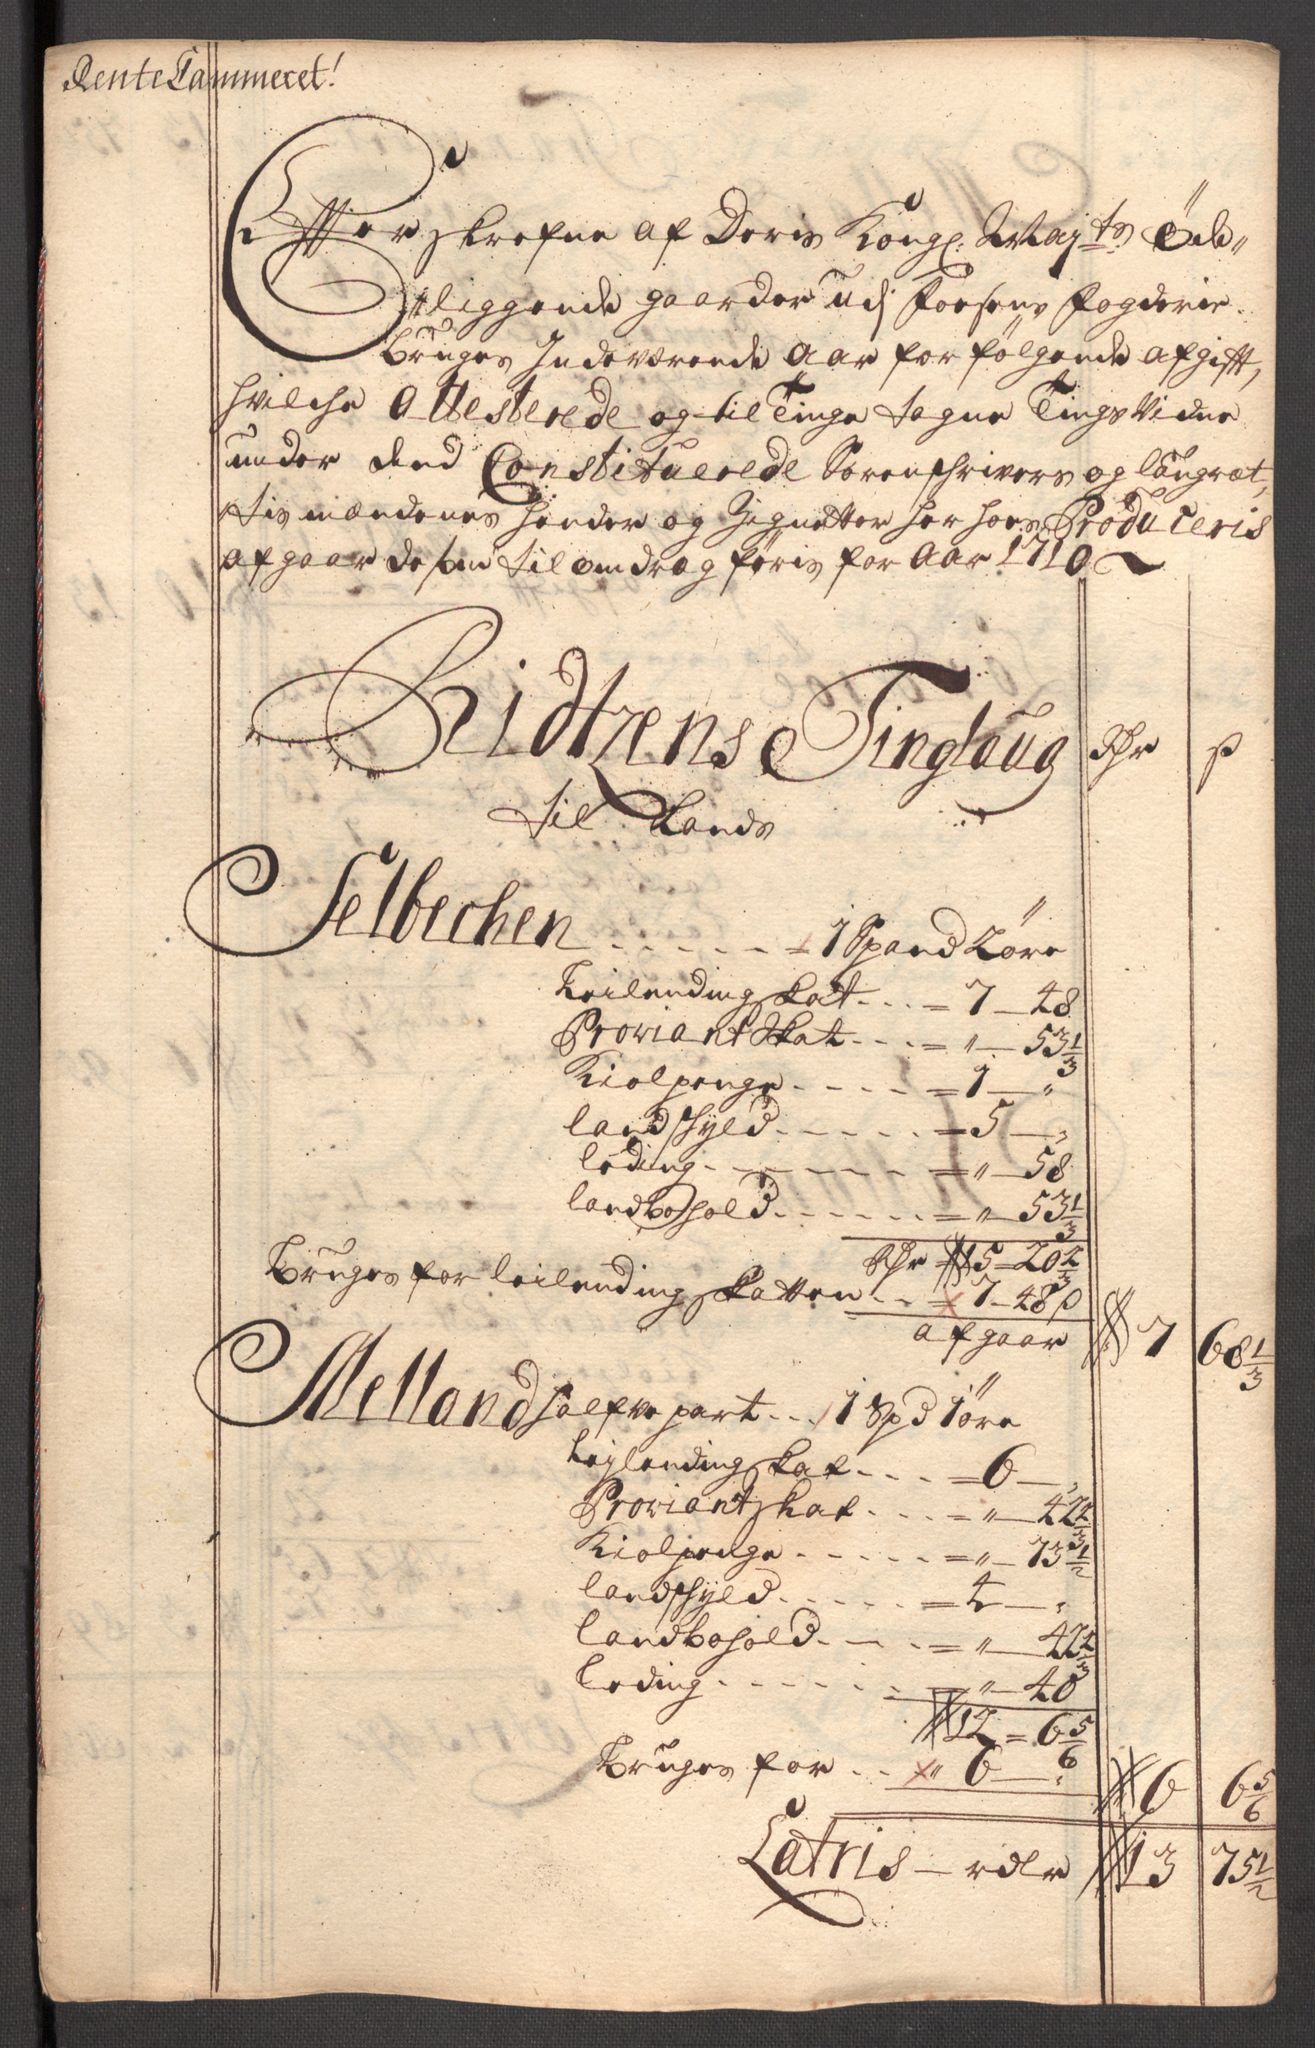 RenteCammeret!
Effterskrefne af Deris Kongl: Mayts Öde
liggende gaarder udj Foesens Fogderie
bruges Indeværende Aar for følgende afgifft,
hvilche Attesterede og til Tinge tagne Tings Vidne
under dend Constituerede Sorenschrivers og laugræt,
tis mændenes hender og Zignetter her hoes Produceris
afgaar desom til omdrag føris for Aar 1710
Ridtzens Tinglaug Rdr ß
til Lands
Selbechen - - - - - 1 Spand 2 öre
Leilending skat - - - = 7 – 48
Proviant Skat - - - = „ – 53 1/3
Kiolpenge - - - - - = 1 – „
landschyld - - - - - = 5 – „
leding - - - - - - - = „ – 58
landbohold - - - - - - = „ – 53 1/3
Rdr 15 = 20 2/3
Bruges for leilending skatten - - = 7 – 48 ß
afgaar 7 68 1/3
Melland halfve part - - - 1 Spd 1 öre
Leylending skat - - - - = 6 – „
Proviant skat - - - - = „ – 42 2/3
Kiolpenge - - - - - = „ – 73 1/2
landschyld - - - - - = 4 – „
landbohold - - - - = „ – 42 2/3
Leding - - - - - - = „ – 40
12 = 6 5/6
Bruges for - - 6 – „ 6 6 5/6
Latris – rdlr 13 75 1/2